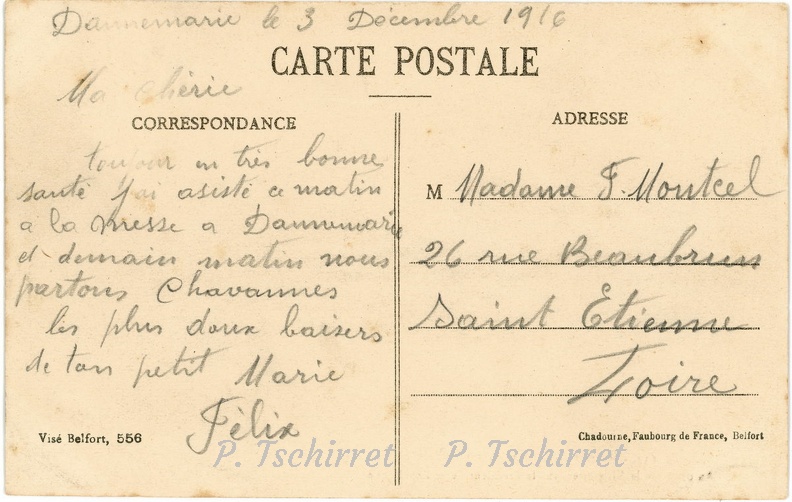 Dannemarie le 3 Décembre 1916
CARTE POSTALE
Ma chérie
CORRESPONDANCE
toujour en très bonne
santé j'ai asisté ce matin
a la messe a Dannemarie
et demain matin nous
partons Chavannes
les plus doux baisers
de ton petit Marie
Félix
Visé Belfort, 556
ADRESSE
M Madame F. Montcel
26 rue Beaubrun
Saint Etienne
Loire
Chadourne, Faubourg de France, Belfort
P. Tschirret P. Tschirret